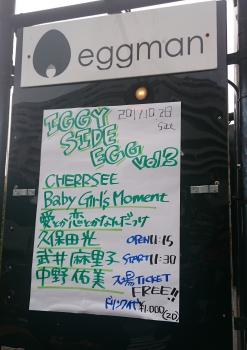 eggman
2017.10.28
Sat
IGGY
SIDE
EGG vol.2
CHERRSEE
Baby Girls Moment
愛とか恋とかなんだっけ
久保田光 OPEN 11:15
武井麻里子 START 11:30
中野佑美 入場 TICKET
FREE!!
ドリンク代 ¥1,000 (2D)